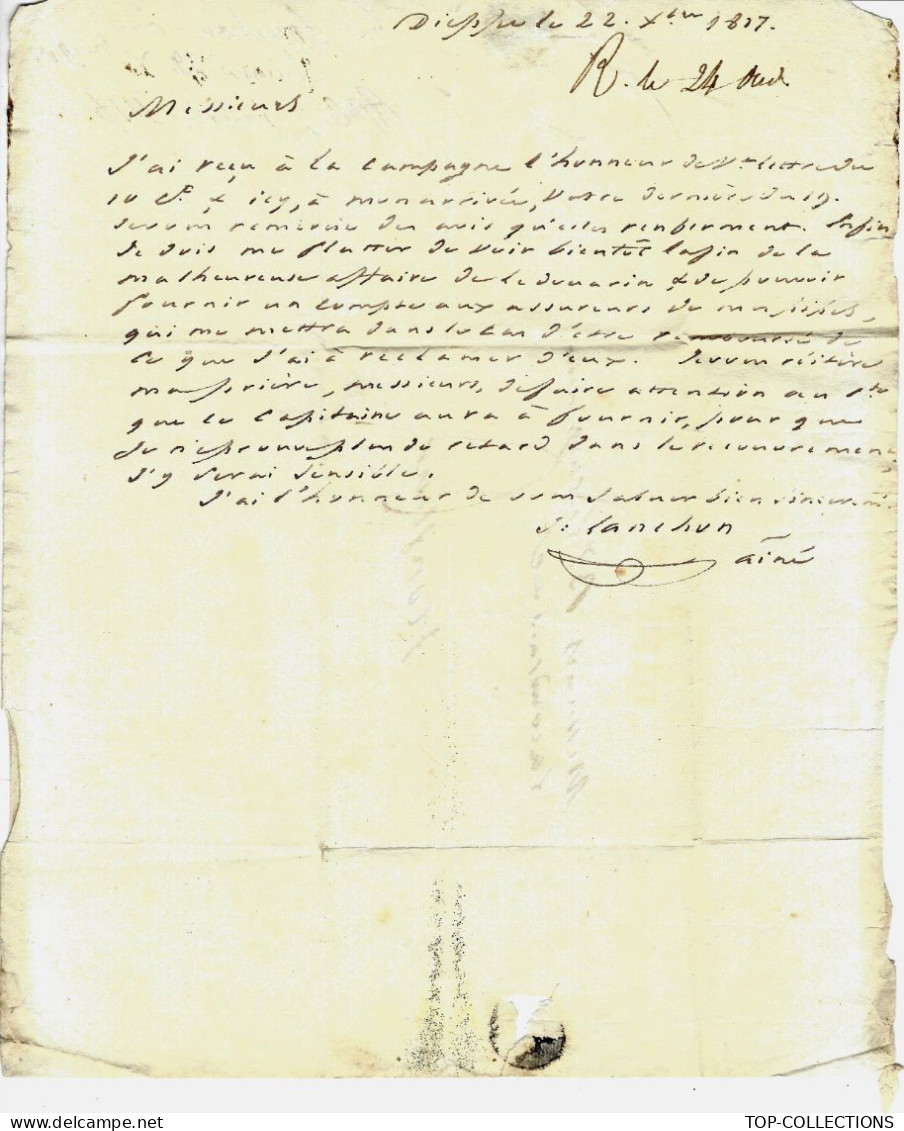 Dieppe le 22. Xbre 1817.
R. le 24 dud.
Messieurs
J'ai reçu à la Campagne l'honneur de Vre lettre du
10 Ct & icy, à mon arrivée, Votre dernière du 19.
Je vous remercie des avis qu'elles renferment. Enfin
Je dois me flatter de voir bientôt la fin de la
malheureuse affaire de Ledouarin & de pouvoir
fournir un Compte aux assureurs de
qui me mettra dans le Cas d'être remboursé de
Ce que J'ai à réclamer d'eux. Je vous réitère
ma prière, Messieurs, de faire attention au
que le Capitaine aura à fournir, pour que
Je n'éprouve plus de retard dans le recouvrement,
J'y Serai Sensible.
J'ai l'honneur de vous Saluer bien Sincerem
J. Lanchon
ainé
TOP-COLLECTIONS